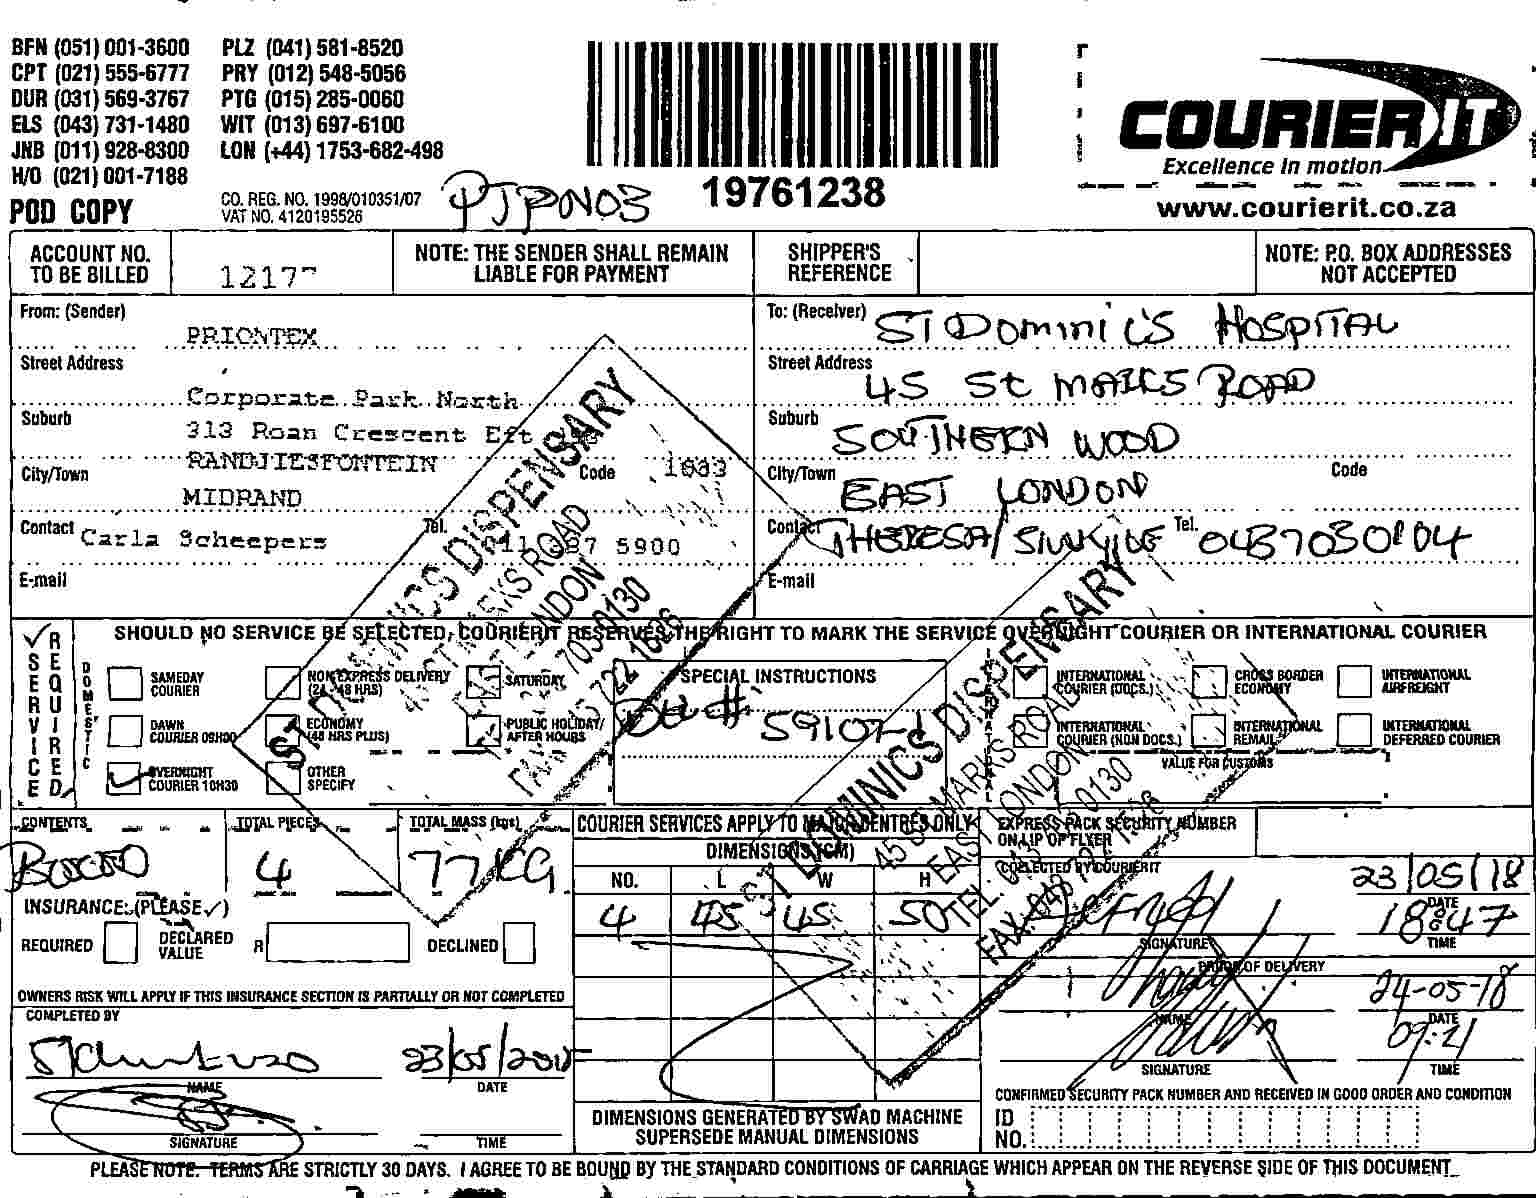 BFN (051) 001-3600 PLZ (041) 581-8520
CPT (021) 555-6777 PRY (012) 548-5056
DUR (031) 569-3767 PTG (015) 285-0060
ELS (043) 731-1480 WIT (013) 697-6100
JNB (011) 928-8300 LON (+44) 1753-682-498
H/O (021) 001-7188
POD COPY
CO. REG. NO. 1998/010351/07
VAT NO. 4120195526
PJPN03
19761238
COURIER IT
Excellence in motion
www.courierit.co.za
ACCOUNT NO. TO BE BILLED
12177
NOTE: THE SENDER SHALL REMAIN LIABLE FOR PAYMENT
SHIPPER'S REFERENCE
NOTE: P.O. BOX ADDRESSES NOT ACCEPTED
From: (Sender)
PRIONTEX
Street Address
Corporate Park North
Suburb
313 Roan Crescent
RANDJIESFONTEIN
City/Town
MIDRAND
Code
Contact Carla Scheepers
Tel. 5900
E-mail
To: (Receiver) ST Dominic's HOSPITAL
Street Address 45 St MARKS ROAD
Suburb SOUTHERN WOOD
City/Town EAST LONDON
Code
Contact THERESA/
Tel. 0437050104
E-mail
ST DOMINICS DISPENSARY
45 ST MARKS ROAD
EAST LONDON
TEL: 043 7090130
FAX: 043 722 1626
SERVICE REQUIRED
SHOULD NO SERVICE BE SELECTED, COURIERIT RESERVES THE RIGHT TO MARK THE SERVICE OVERNIGHT COURIER OR INTERNATIONAL COURIER
DOMESTIC
SAMEDAY COURIER
DAWN COURIER 09H00
OVERNIGHT COURIER 10H30
NON EXPRESS DELIVERY (24 - 48 HRS)
ECONOMY (48 HRS PLUS)
OTHER SPECIFY
SATURDAY
PUBLIC HOLIDAY/ AFTER HOURS
SPECIAL INSTRUCTIONS
INTERNATIONAL COURIER (DOCS.)
INTERNATIONAL COURIER (NON DOCS.)
CROSS BORDER ECONOMY
INTERNATIONAL REMAIL
INTERNATIONAL AIRFREIGHT
INTERNATIONAL DEFERRED COURIER
VALUE FOR CUSTOMS
CONTENTS
TOTAL PIECES
4
TOTAL MASS (kgs)
77KG
INSURANCE: (PLEASE ✓)
REQUIRED
DECLARED VALUE
R
DECLINED
OWNERS RISK WILL APPLY IF THIS INSURANCE SECTION IS PARTIALLY OR NOT COMPLETED
COMPLETED BY
23/05/2018
NAME
DATE
SIGNATURE
TIME
COURIER SERVICES APPLY TO MAJOR CENTRES ONLY
DIMENSIONS (CM)
NO. L W H
4 45 45 50
DIMENSIONS GENERATED BY SWAD MACHINE SUPERSEDE MANUAL DIMENSIONS
ST DOMINICS DISPENSARY
45 ST MARKS ROAD
EAST LONDON
TEL: 043 7090130
FAX: 043 722 1626
EXPRESS PACK SECURITY NUMBER ON LIP OF FLYER
COLLECTED BY COURIERIT
23/05/18
DATE
18:47
SIGNATURE
TIME
PROOF OF DELIVERY
24-05-18
NAME
DATE
09:21
SIGNATURE
TIME
CONFIRMED SECURITY PACK NUMBER AND RECEIVED IN GOOD ORDER AND CONDITION
ID NO.
PLEASE NOTE: TERMS ARE STRICTLY 30 DAYS. I AGREE TO BE BOUND BY THE STANDARD CONDITIONS OF CARRIAGE WHICH APPEAR ON THE REVERSE SIDE OF THIS DOCUMENT